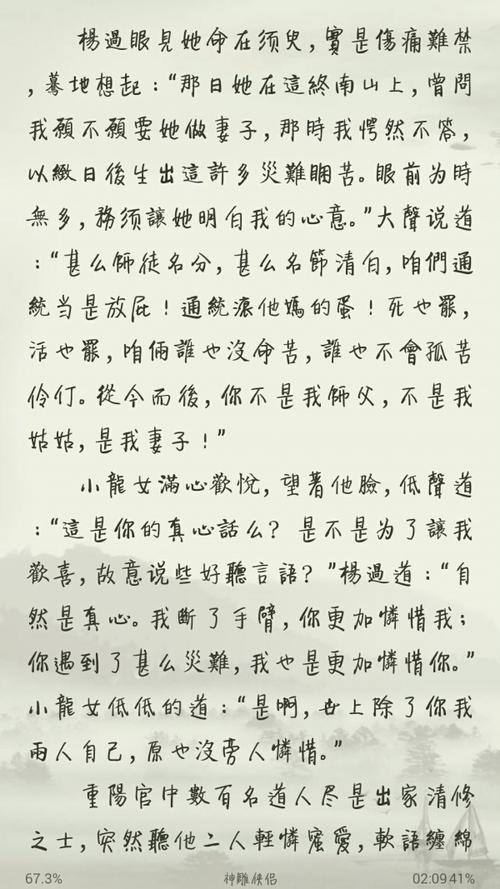 楊過眼見她命在須臾，實是傷痛難禁
，驀地想起：“那日她在這終南山上，曾問
我願不願要她做妻子，那時我愕然不答，
以緻日後生出這許多災難睏苦。眼前为時
無多，務须讓她明白我的心意。”大聲说道
：“甚么師徒名分，甚么名節清白，咱們通
統当是放屁！通統滾他媽的蛋！死也罷，
活也罷，咱倆誰也沒命苦，誰也不會孤苦
伶仃。從今而後，你不是我師父，不是我
姑姑，是我妻子！”
小龍女滿心歡悅，望著他臉，低聲道
：“這是你的真心話么？是不是为了讓我
歡喜，故意说些好聽言語？”楊過道：“自
然是真心。我斷了手臂，你更加憐惜我；
你遇到了甚么災難，我也是更加憐惜你。”
小龍女低低的道：“是啊，世上除了你我
兩人自己，原也沒旁人憐惜。”
重陽宮中數百名道人尽是出家清修
之士，突然聽他二人輕憐蜜愛，軟語纏綿
67.3%
神雕侠侣
02:09 41%